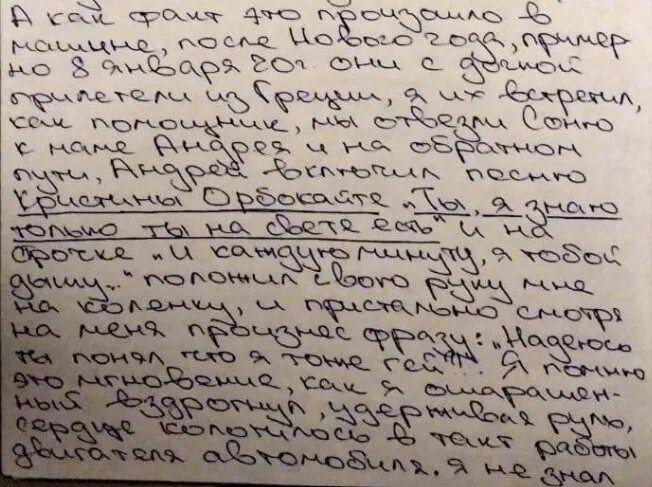 А как факт это произошло в
машине, после Нового года, пример
но 8 января 20г. они с дочкой
прилетели из Греции, я их встретил,
как помощник, мы отвезли Соню
к маме Андрея и на обратном
пути, Андрей включил песню
Кристины Орбокайте „Ты, я знаю
только ты на свете есть" и на
строчке „И каждую минуту, я тобой
дышу.." положил свою руку мне
на коленку, и пристально смотря
на меня произнес фразу: „Надеюсь
ты понял что я тоже гей". Я помню
это мгновение, как я ошарашен-
ный вздрогнул, удерживая руль,
сердце колотилось в такт работы
двигателя автомобиля. Я не знал